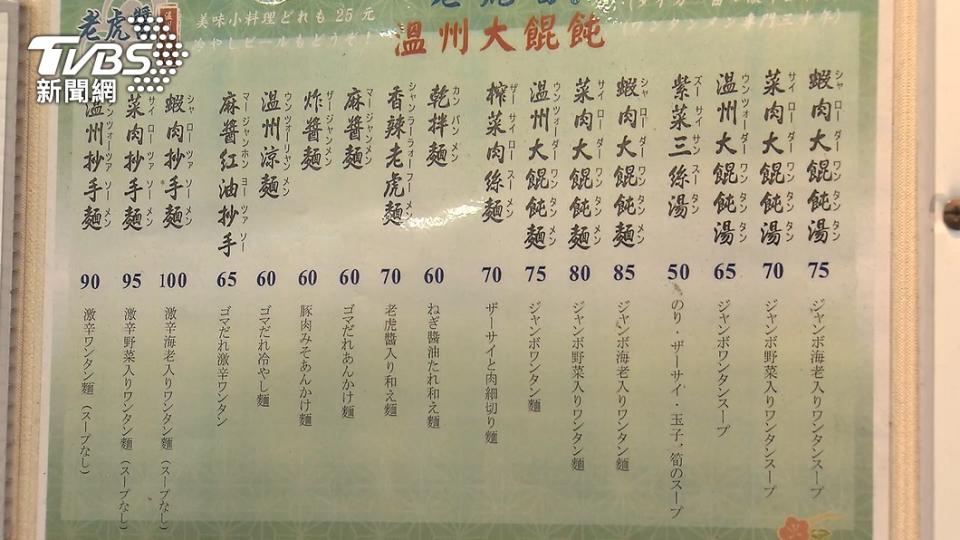 TVBS
新聞網
老虎醬
美味小料理どれも25元
冷やしビールもどうぞ
溫州大餛飩
蝦肉大餛飩湯
シャーローダーワンタンタン
75
ジャンボ海老入りワンタンスープ
菜肉大餛飩湯
サイローダーワンタンタン
70
ジャンボ野菜入りワンタンスープ
溫州大餛飩湯
ウンツォーダーワンタンタン
65
ジャンボワンタンスープ
紫菜三絲湯
ズーサイサンスータン
50
のり・ザーサイ・玉子、筍のスープ
蝦肉大餛飩麵
シャーローダーワンタンメン
85
ジャンボ海老入りワンタン麵
菜肉大餛飩麵
サイローダーワンタンメン
80
ジャンボ野菜入りワンタン麵
溫州大餛飩麵
ウンツォーダーワンタンメン
75
ジャンボワンタン麵
榨菜肉絲麵
ザーサイロースーメン
70
ザーサイと肉細切り麵
乾拌麵
カンバンメン
60
ねぎ醬油たれ和え麵
香辣老虎麵
シャンラーラォフーメン
70
老虎醬入り和え麵
麻醬麵
マージャンメン
60
ゴマだれあんかけ麵
炸醬麵
ザージャンメン
60
豚肉みそあんかけ麵
溫州涼麵
ウンツォーリャンメン
60
ゴマだれ冷やし麵
麻醬紅油抄手
マージャンホンヨーツァソー
65
ゴマだれ激辛ワンタン
蝦肉抄手麵
シャローツァソーメン
100
激辛海老入りワンタン麵（スープなし）
菜肉抄手麵
サイローツァソーメン
95
激辛野菜入りワンタン麵（スープなし）
溫州抄手麵
ウンツォーツァソーメン
90
激辛ワンタン麵（スープなし）